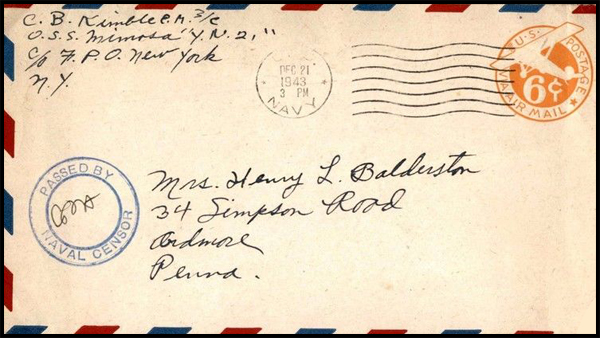 C. B. Kimble E.M. 3/c
U.S.S. "Mimosa" Y.N. 21,"
C/o F.P.O. New York
N.Y.
DEC 21
1943
3 PM
NAVY
U.S. POSTAGE
6¢
VIA AIR MAIL
PASSED BY
NAVAL CENSOR
Mrs. Henry L. Balderston
34 Simpson Road
Ardmore
Penna.